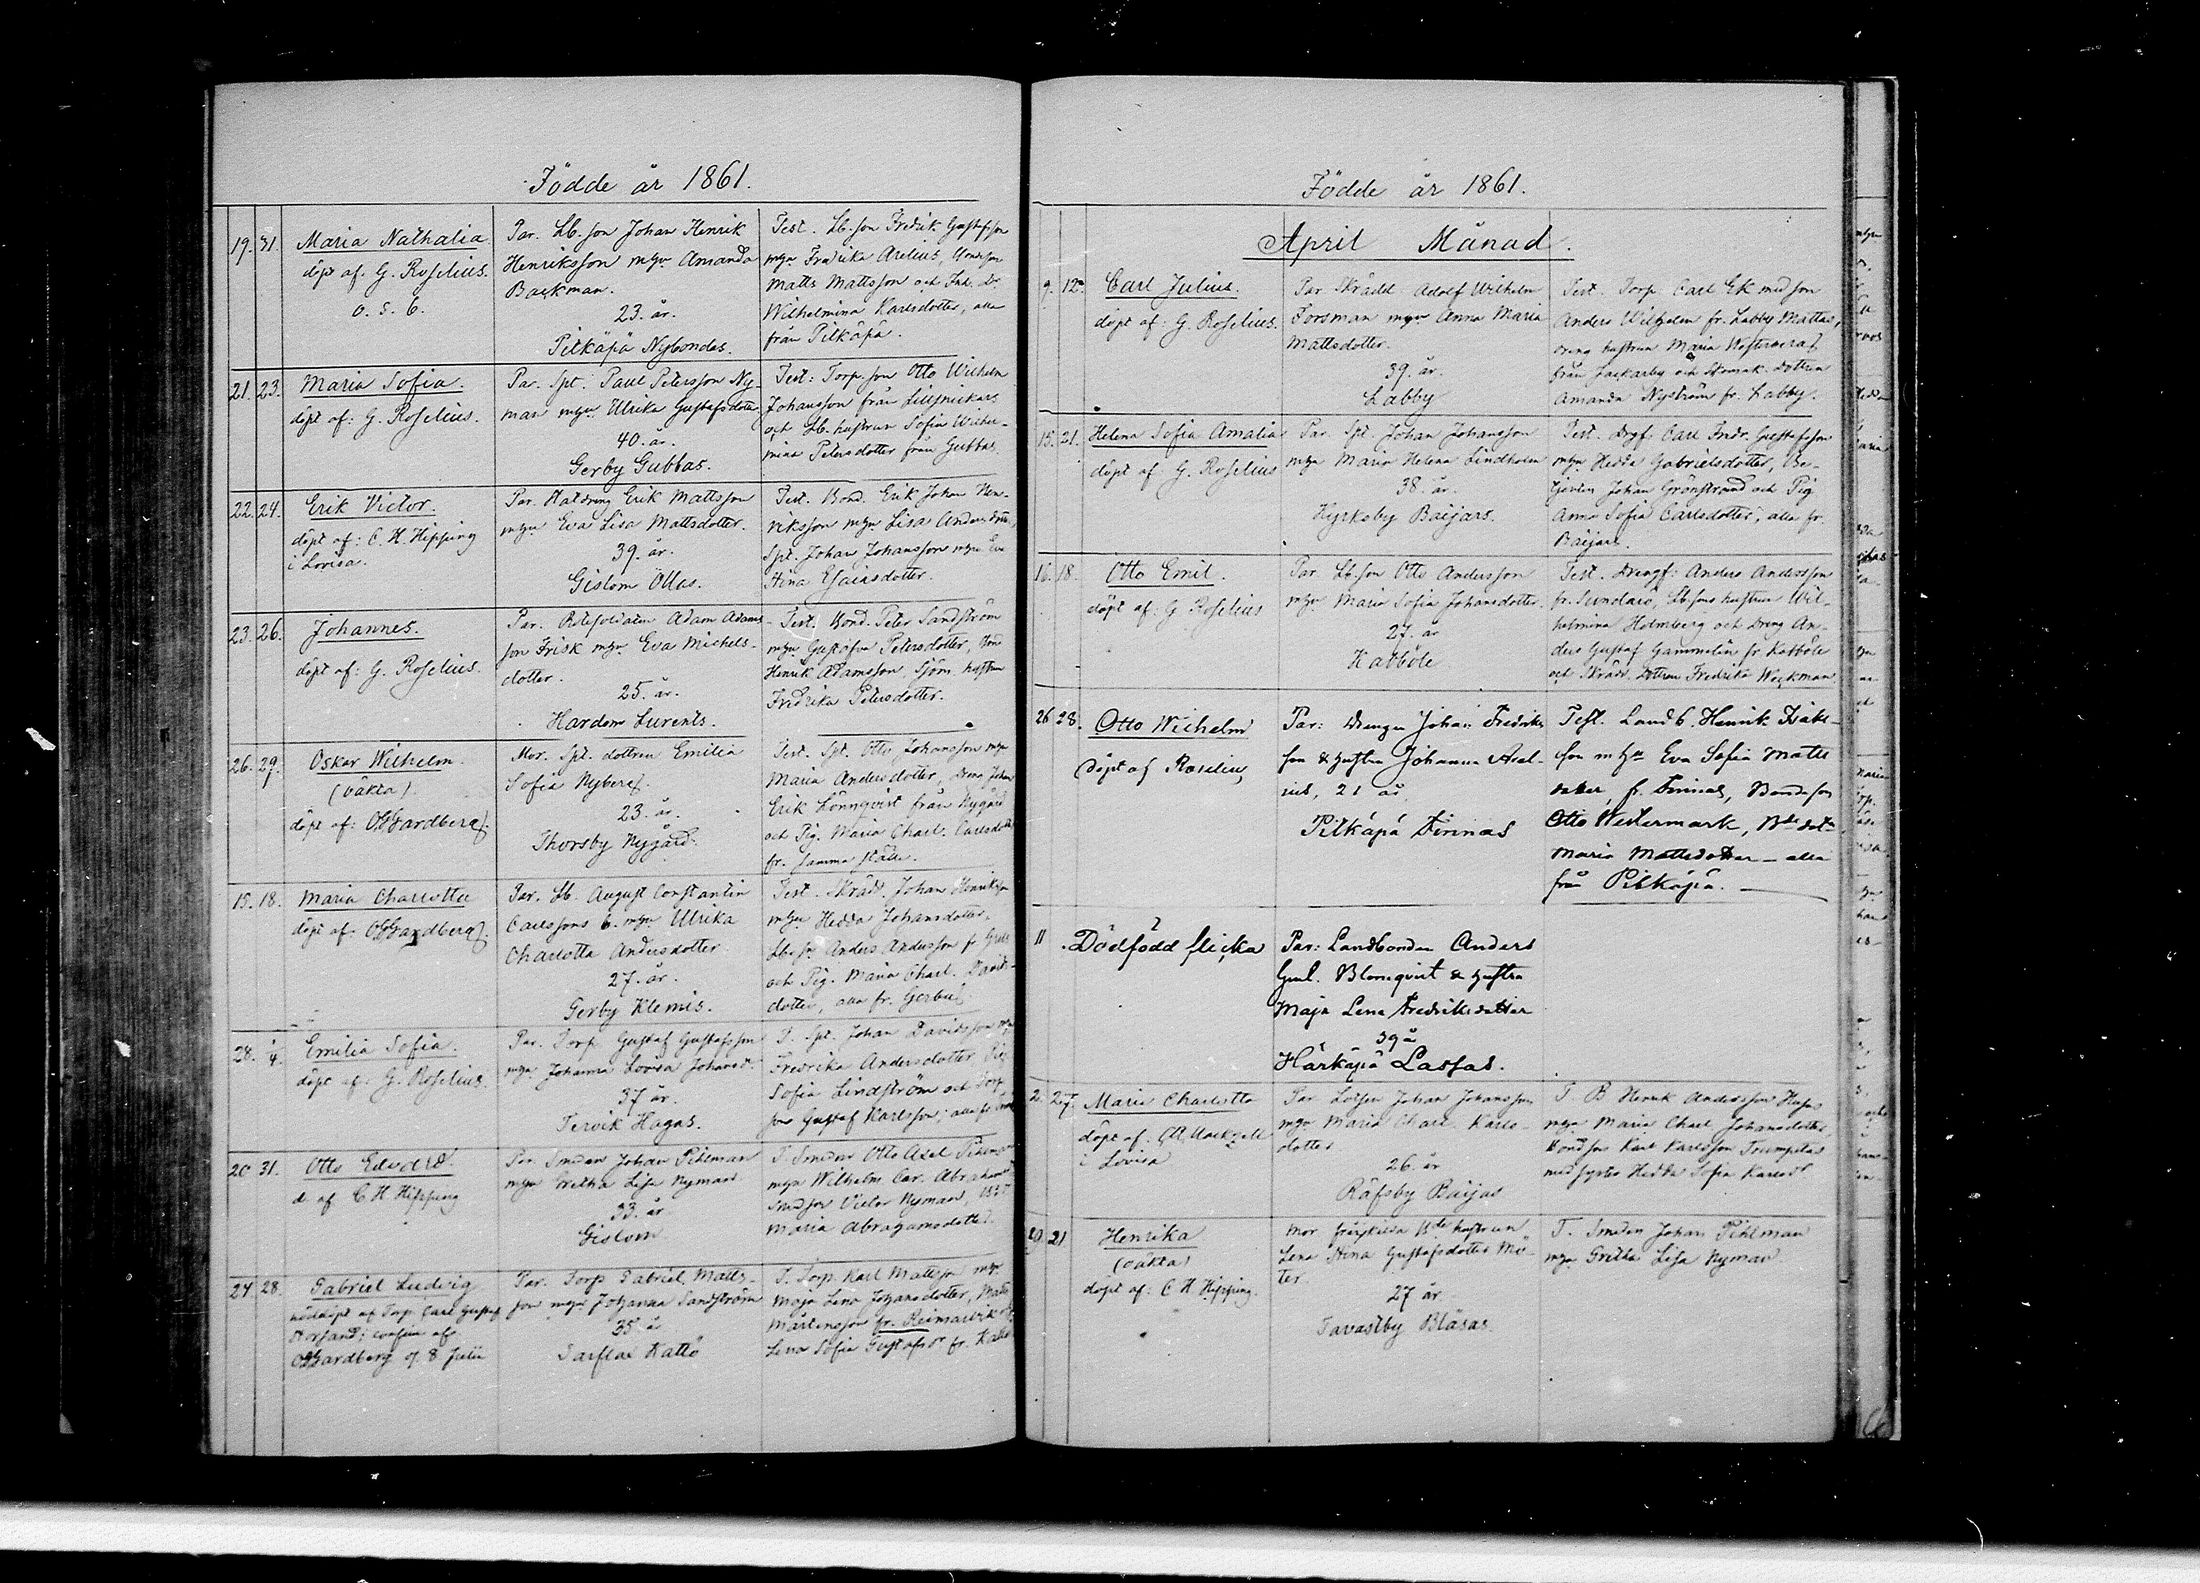 Födde år 1861.
19. 31. Maria Nathalia.
döpt af: G. Roselius.
o. s. 6.
Par. Lb. son Johan Henrik
Henriksson m hu Amanda
Backman.
23. år.
Pitkäpä Nybondas.
Test. Lb. son Fredrik Gustafsson
m hu Fredrika Arelius,
Matts Mattsson och
Wilhelmina Karlsdotter, alla
från Pitkäpä.
21. 23. Maria Sofia.
döpt af: G. Roselius.
Par. Spt. Paul Petersson Ny-
man m hu Ulrika Gustafsdotter
40. år.
Gerby Gubbas.
Test: Torp. son Otto Wilhelm
Johansson från Lillsnickars
och Lb. hustrun Sofia Wilhel-
mina Petersdotter från Gubbas.
22. 24. Erik Victor.
döpt af: C. H. Hipping
i Lovisa.
Par. Statdreng Erik Mattsson
m hu Eva Lisa Mattsdotter.
39. år.
Gislom Ollas.
Test. Bond. Erik Johan Hen-
riksson m hu Lisa Andersdotter,
Spt. Johan Johansson m hu Eva
Stina Esaiasdotter.
23. 26. Johannes.
döpt af: G. Roselius.
Par. Rotesoldaten Adam Adams-
son Frisk m hu Eva Michels-
dotter.
25. år.
Hardom Lurents.
Test. Bond. Peter Sandström
m hu Gustafva Petersdotter,
Henrik Adamsson, Sjöm. hustrun
Fredrika Petersdotter.
26. 29. Oskar Wilhelm.
(oäkta)
döpt af: Gardberg.
Mor. Spt. dottren Emilia
Sofia Nyberg.
23. år.
Thorsby Nygård.
Test. Spt. Otto Johansson m hu
Maria Andersdotter, Dreng Johan
Erik Lönnqvist från Nygård
och Pig. Maria Charl. Carlsdotter
fr. samma ställe.
15. 18. Maria Charlotta
döpt af: Gardberg.
Par. Lb. August Constantin
Carlssons b. m hu Ulrika
Charlotta Andersdotter
27. år.
Gerby Klemis.
Test. Skrädd. Johan Henriksson
m hu Hedda Johansdotter,
Lb. son Anders Andersson fr.
och Pig. Maria Charl. Davids-
dotter, alla fr. Gerby.
28. 1/4. Emilia Sofia.
döpt af: G. Roselius.
Par. Torp. Gustaf Gustafsson
m hu Johanna Lovisa Johansd.
37 år.
Tervik Hagas.
T. Spt. Johan Davidsson m hu
Fredrika Andersdotter Pig.
Sofia Lindström och Torp.
son Gustaf Karlsson; alla fr.
20 31. Otto Edvard.
d af C H Hipping
Par. Smeden Johan Pihlman
m hu Gretha Lisa Nyman
33. år
Gislom
T. Smeden Otto Axel Pihlman
m hu Wilhelm. Car. Abrahamsd
Smed son Victor Nyman,
Maria Abrahamsdotter.
24 28. Gabriel Ludvig
nöddöpt af Torp. Carl Gustaf
Norstrand; confirm. af
Gardberg d. 8 Julii
Par. Torp. Gabriel Matts-
son m hu Johanna Sandström
35 år
Sarflax Kattö
T. Torp. Karl Mattsson m hu
Maja Lena Johansdotter, Matts
Mårtensson fr. Reimarsvik
Lena Sofia Gustafsdr fr. Kattö
Födde år 1861.
April Månad.
9. 12. Carl Julius.
döpt af: G. Roselius.
Par Skrädd. Adolf Wilhelm
Forsman m hu Anna Maria
Mattsdotter.
39. år.
Labby
Test. Torp. Carl Ek med son
Anders Wilhelm fr. Labby Mattas,
Dreng hustrun Maria
från Jackarby och Skomak. dottren
Amanda Nyström fr. Labby.
15. 21. Helena Sofia Amalia
döpt af: G. Roselius
Par. Spt. Johan Johansson
m hu Maria Helena Lindholm
38. år.
Kyrksby Baijars.
Test. Drgf. Carl Fredr. Gustafsson
m hu Hedda Gabrielsdotter, Be-
tjenten Johan Grönstrand och Pig.
Anna Sofia Carlsdotter, alla fr.
Baijars.
16. 18. Otto Emil.
döpt af: G Roselius
Par. Lb. son Otto Andersson
m hu Maria Sofia Johansdotter.
27. år
Katböle
Test. Drengf: Anders Andersson
fr. Sundarö, Lb. sons hustrun Wil-
helmina Holmberg och Dreng An-
ders Gustaf Gammelin fr Katböle
och Skrädd. dottren Fredrika Weckman
26 28. Otto Wilhelm
döpt af Roselius
Par: Drengen Johan Fredriks
son & hustru Johanna Arel-
ius, 21 år,
Pitkäpä Finnas
Test. Landb. Henrik Isaks-
son m hu Eva Sofia Matts
dotter, fr. Finnas, Bondeson
Otto Westermark, Bde dotn
Maria Mattsdotter – alla
från Pitkäpä.
11 Dödfödd flicka
Par: Landbonden Anders
Gust. Blomqvist & hustru
Maja Lena Fredriksdotter
39 å
Härkäpä Lassas.
2. 27. Maria Charlotta
döpt af:
i Lovisa
Par Lotsen Johan Johansson
m hu Maria Charl. Karls-
dotter
26. år
Räfsby Baijas
T. B Henrik Andersson
m hu Maria Charl Johansdotter,
Bondson Karl Karlsson Trumpetas
med syster Hedda Sofia Karlsdr
20 21 Henrika
(oäkta)
döpt af: C H Hipping.
Mor frånskilda Bde hustrun
Lena Stina Gustafsdotter Mö-
ter.
27 år
Tavastby Bläsas.
T. Smeden Johan Pihlman
m hu Gretha Lisa Nyman